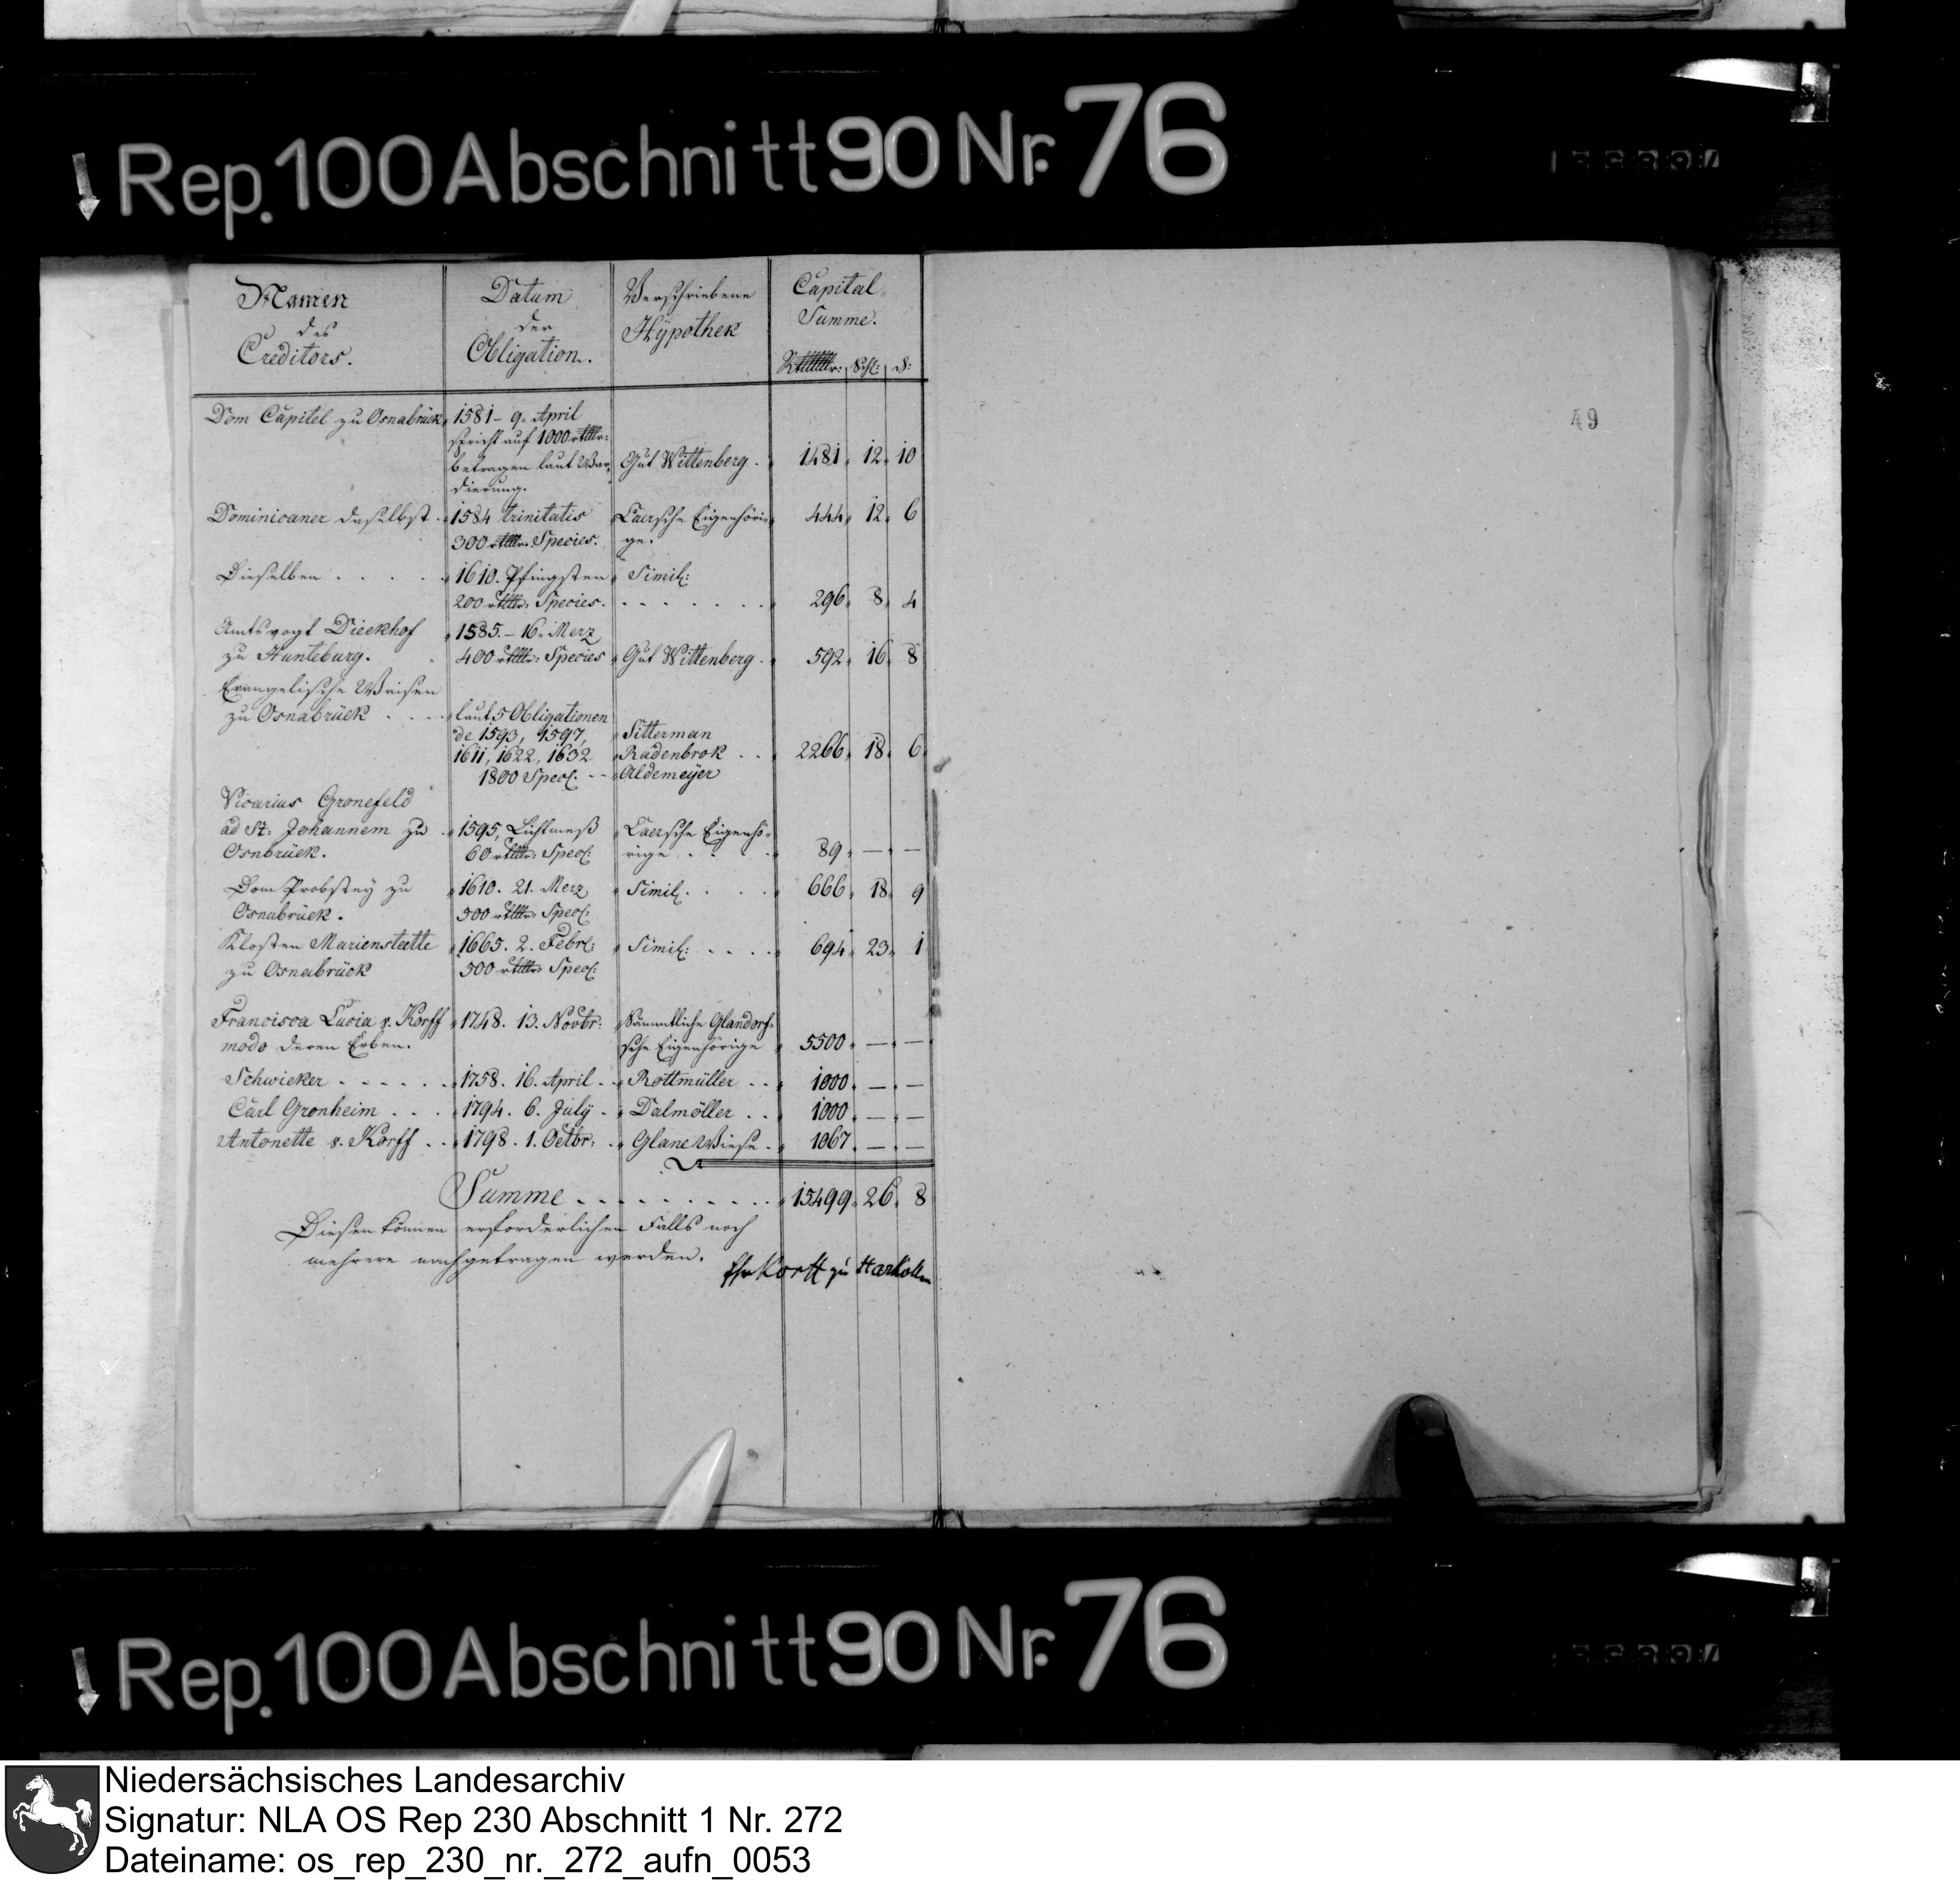 Rep. 100 Abschnitt 90 Nr. 76
49
Namen des Creditors. | Datum der Obligation. | Verschriebene Hÿpothek | Capital Summe. Rthlr: Schl: d:
Dom Capitel zu Osnabrück | 1581 - 9. April
spricht auf 1000 rthlr:
betragen laut War- | Gut Wittenberg. | 1481 12 10
dierung.
Dominicaner daselbst. | 1584 trinitatis | Laersche Eigenhöri- | 444 12 6
300 rthlr. Species. | ge.
Dieselben . . . . | 1610. Pfingsten | Simil:
200 rthlr: Species. | . . . . . . | 296 8 4
Amtsvogt Dieckhof | 1585. - 16. Merz
zu Hunteburg. | 400 rthlr: Species | Gut Wittenberg. | 592 16 8
Evangelische Waisen
zu Osnabrück . . . | laut 5 Obligationen
de 1593, 1597, | Sitterman
1611, 1622, 1632 | Radenbrok . . | 2266 18 6
1800 Spec: - - | Aldemeÿer
Vicarius Gronefeld
ad St: Johannem zu | 1595, Lichtmeß | Laersche Eigenhö-
Osnbrück. | 60 rthlr: Spec: | rige . . . | 89 — —
Dom Probsteÿ zu | 1610. 21. Merz | Simil: . . . | 666 18 9
Osnabrück. | 500 rthlr: Spec:
Kloster Marienstette | 1665. 2. Febr: | Simil: . . . . | 694 23 1
zu Osnabrück | 500 rthlr: Spec:
Francisca Lucia v. Korff | 1748. 13. Novbr: | Sämmtliche Glandorf-
modo deren Erben. | sche Eigenhörige | 5500 — —
Schwieker . . . . . | 1758. 16. April . . | Rottmüller . . | 1000 — —
Carl Gronheim . . . | 1794. 6. Julÿ . | Dalmöller . . | 1000 — —
Antonette v. Korff . . | 1798. 1. Octbr: . | Glane Wiese . | 1067 — —
Summe . . . . . . . . . 15499 26 8
Diesen können erforderlichen Falls noch
mehrere nachgetragen werden.
Korff zu Harkotten
Rep. 100 Abschnitt 90 Nr. 76
Niedersächsisches Landesarchiv
Signatur: NLA OS Rep 230 Abschnitt 1 Nr. 272
Dateiname: os_rep_230_nr._272_aufn_0053